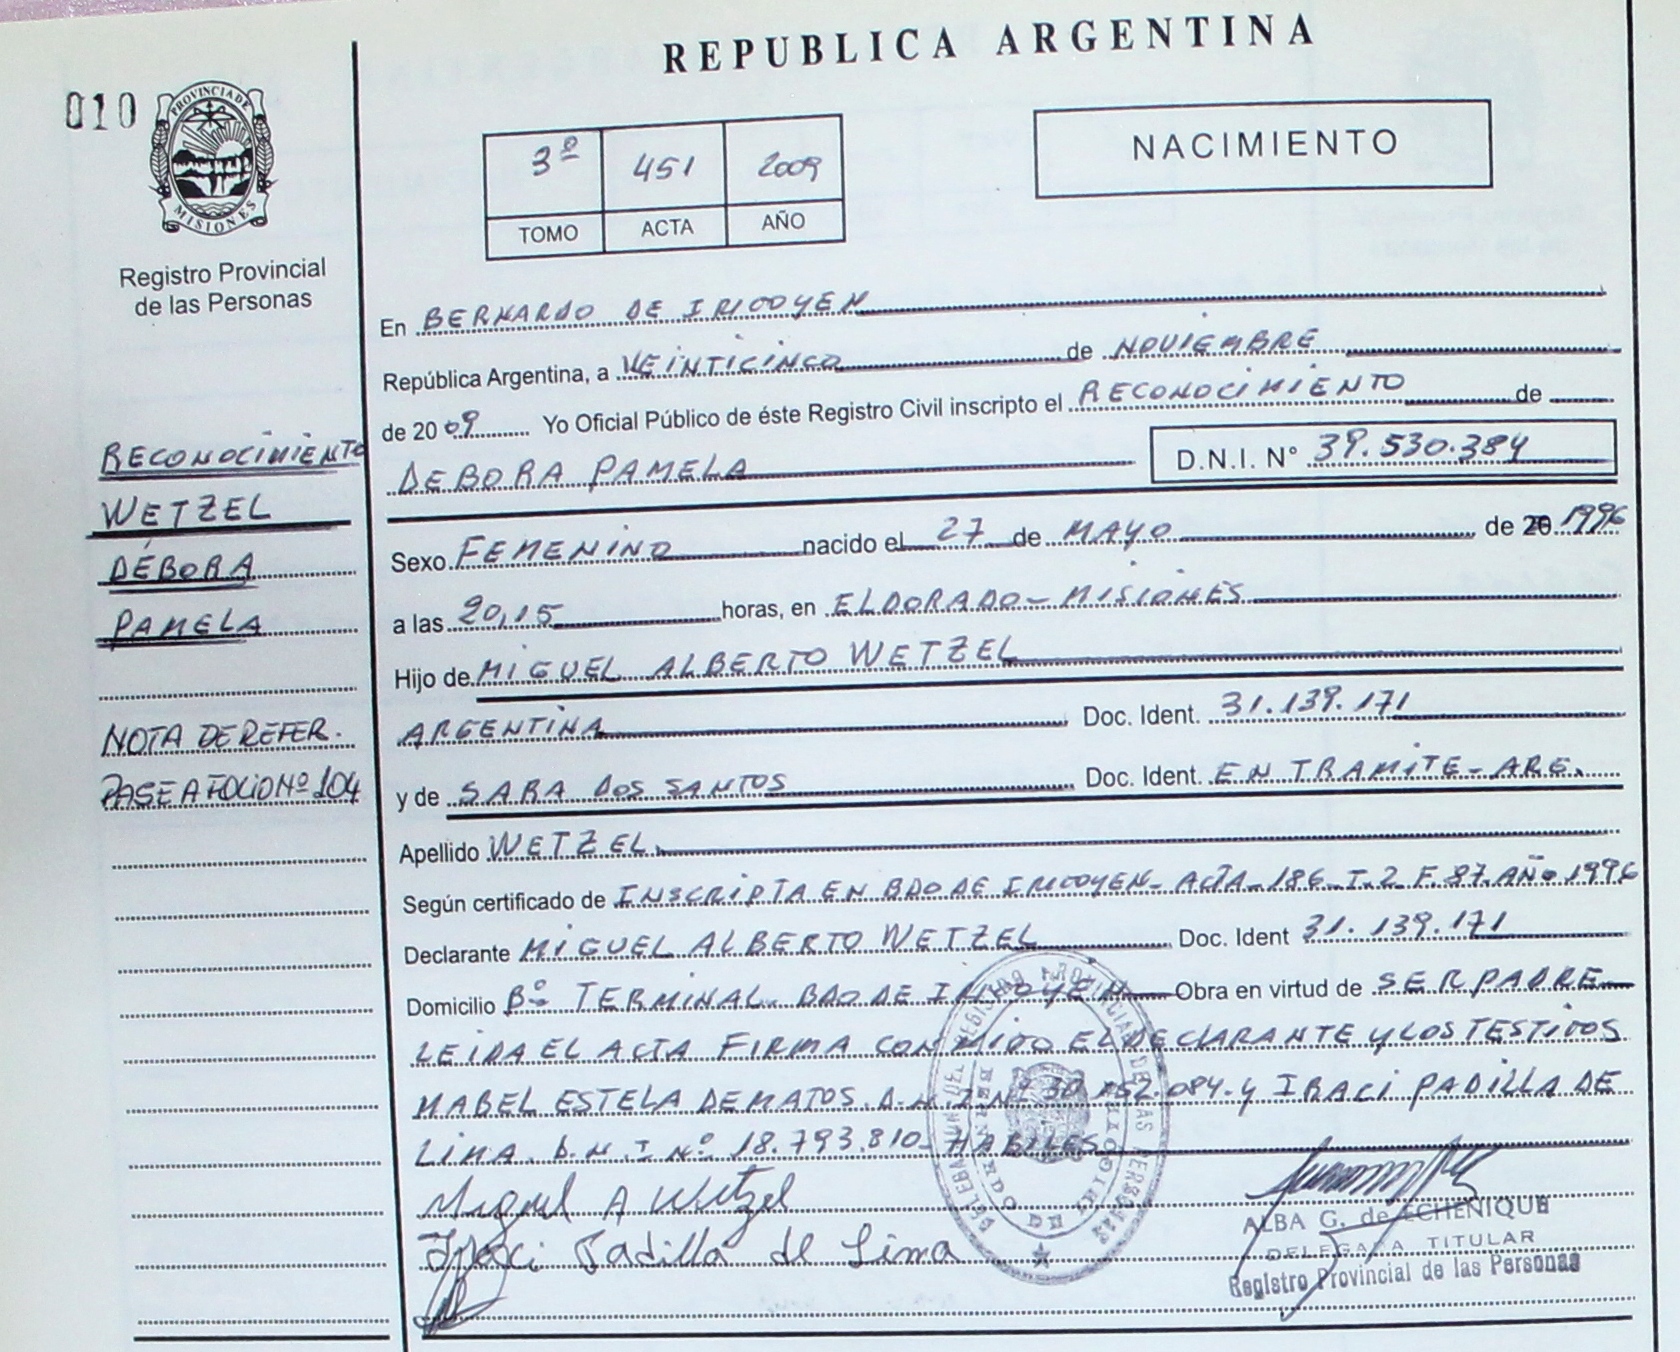 REPUBLICA ARGENTINA
010
PROVINCIA DE
MISIONES
Registro Provincial
de las Personas
3º 451 2009
TOMO ACTA AÑO
NACIMIENTO
En BERNARDO DE IRIGOYEN
República Argentina, a VEINTICINCO de NOVIEMBRE
de 2009 Yo Oficial Público de éste Registro Civil inscripto el RECONOCIMIENTO de
DEBORA PAMELA D.N.I. N° 39.530.384
Sexo FEMENINO nacido el 27 de MAYO de 20 1996
a las 20,15 horas, en ELDORADO - MISIONES
Hijo de MIGUEL ALBERTO WETZEL
ARGENTINA Doc. Ident. 31.139.171
y de SARA DOS SANTOS Doc. Ident. EN TRAMITE - ARG.
Apellido WETZEL
Según certificado de INSCRIPTA EN BDO DE IRIGOYEN - ACTA - 186 - T. 2 F. 87. AÑO 1996
Declarante MIGUEL ALBERTO WETZEL Doc. Ident 31.139.171
Domicilio Bº TERMINAL. BDO DE IRIGOYEN Obra en virtud de SER PADRE
LEIDA EL ACTA FIRMA CONMIGO EL DECLARANTE Y LOS TESTIGOS
MABEL ESTELA DE MATOS. D.N.I. Nº 30. 52.084. Y IRACI PADILLA DE
LIMA. D.N.I Nº 18.793.810 - HABILES
Miguel A Wetzel
Iraci Padilla de Lima
RECONOCIMIENTO
WETZEL
DÉBORA
PAMELA
NOTA DE REFER.
PASE A FOLIO Nº 104
DELEGACION DEL REGISTRO PROVINCIAL DE LAS PERSONAS
BERNARDO DE IRIGOYEN
ALBA G. de ECHENIQUE
DELEGADA TITULAR
Registro Provincial de las Personas